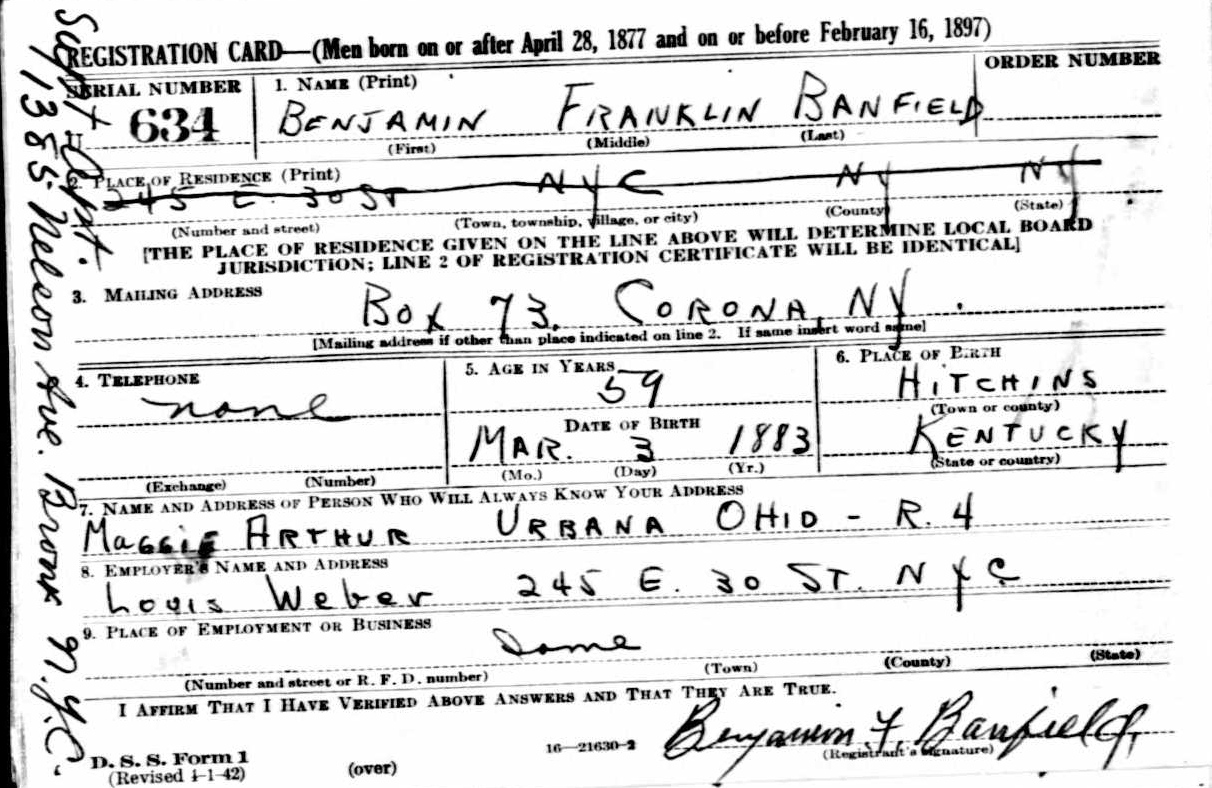 REGISTRATION CARD—(Men born on or after April 28, 1877 and on or before February 16, 1897)
SERIAL NUMBER
1. NAME (Print)
ORDER NUMBER
634
BENJAMIN FRANKLIN BANFIELD
(First) (Middle) (Last)
2. PLACE OF RESIDENCE (Print)
245 E. 30 ST NYC NY NY
(Number and street) (Town, township, village, or city) (County) (State)
[THE PLACE OF RESIDENCE GIVEN ON THE LINE ABOVE WILL DETERMINE LOCAL BOARD
JURISDICTION; LINE 2 OF REGISTRATION CERTIFICATE WILL BE IDENTICAL]
3. MAILING ADDRESS
BOX 73, CORONA, NY.
[Mailing address if other than place indicated on line 2. If same insert word same]
4. TELEPHONE
none
(Exchange) (Number)
5. AGE IN YEARS
59
DATE OF BIRTH
MAR. 3 1883
(Mo.) (Day) (Yr.)
6. PLACE OF BIRTH
HITCHINS
(Town or county)
KENTUCKY
(State or country)
7. NAME AND ADDRESS OF PERSON WHO WILL ALWAYS KNOW YOUR ADDRESS
MAGGIE ARTHUR URBANA OHIO - R. 4
8. EMPLOYER'S NAME AND ADDRESS
Louis Weber 245 E. 30 ST. NYC
9. PLACE OF EMPLOYMENT OR BUSINESS
Same
(Number and street or R. F. D. number) (Town) (County) (State)
I AFFIRM THAT I HAVE VERIFIED ABOVE ANSWERS AND THAT THEY ARE TRUE.
Benjamin F. Banfield
D. S. S. Form 1
(Revised 4-1-42)
(over)
16—21630-2
(Registrant's signature)
Supt Apt.
1385 Nelson Ave. Bronx N.Y.C.